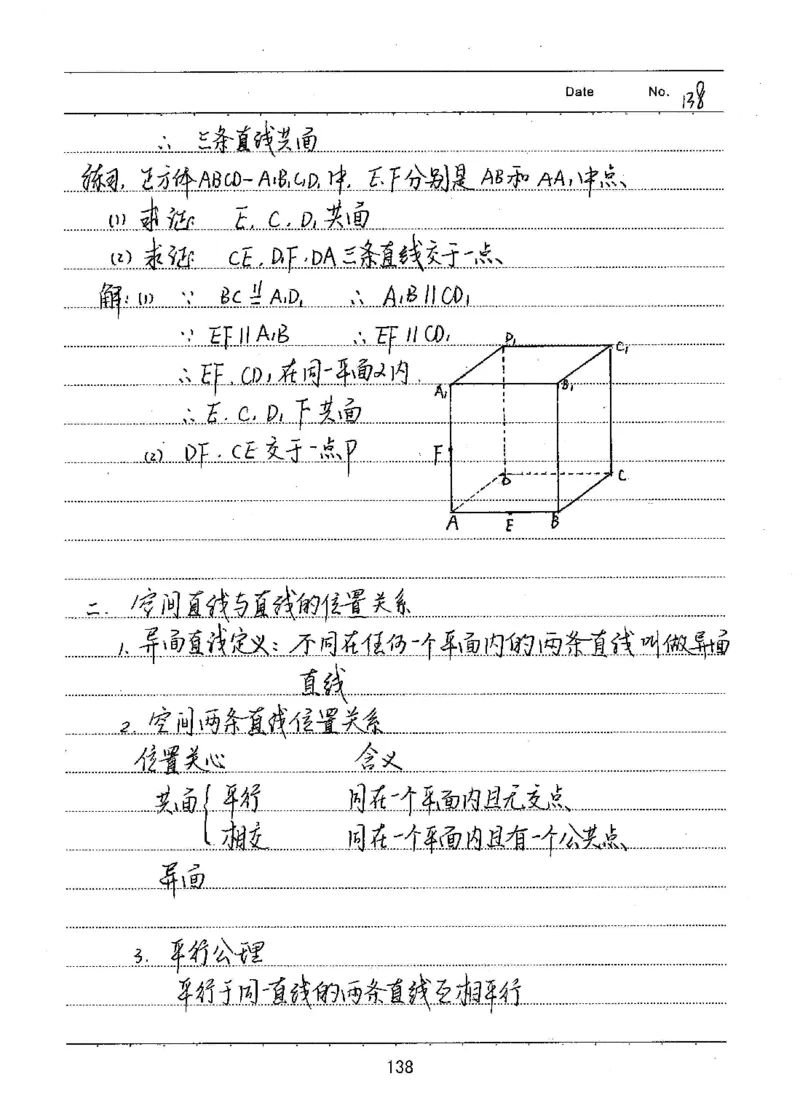 Date No. 138
∴ 三条直线共面
练习. 正方体ABCD-A₁B₁C₁D₁中. E.F分别是AB和AA₁中点、
(1) 求证: E. C. D₁共面
(2) 求证: CE. D₁F. DA三条直线交于一点、
解: (1) ∵ BC ∥= A₁D₁ ∴ A₁B∥CD₁
∵ EF∥A₁B ∴ EF∥CD₁
∴ EF. CD₁在同一平面α内.
∴ E. C. D₁ F共面
(2) DF. CE交于一点P
D₁ C₁
A₁ B₁
F
D C
A E B
二. 空间直线与直线的位置关系
1. 异面直线定义: 不同在任何一个平面内的两条直线叫做异面
直线
2. 空间两条直线位置关系
位置关心 含义
共面{ 平行 同在一个平面内且无交点、
相交 同在一个平面内且有一个公共点、
异面
3. 平行公理
平行于同一直线的两条直线互相平行
138